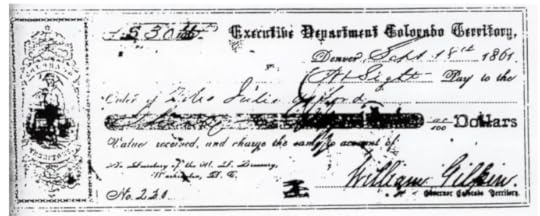 $ 530 Executive Department Colorado Territory,
Denver, Sept 18th 1861
At Sight Pay to the
Order of Julia Gifford
/100 Dollars
Value received, and charge the same to account of
The Secretary of the U. S. Treasury,
Washington, D. C.
No. 220. William Gilpin
Governor Colorado Territory.